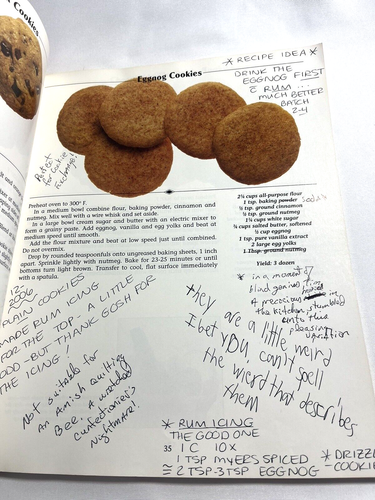 Cookies
Eggnog Cookies
* RECIPE IDEA *
DRINK THE
EGGNOG FIRST
c̄ RUM ...
MUCH BETTER
BATCH
2-4
Perfect
For Cookie
Exchange!
Preheat oven to 300° F
In a medium bowl combine flour, baking powder, cinnamon and
nutmeg. Mix well with a wire whisk and set aside.
In a large bowl cream sugar and butter with an electric mixer to
form a grainy paste. Add eggnog, vanilla and egg yolks and beat at
medium speed until smooth.
Add the flour mixture and beat at low speed just until combined.
Do not overmix.
Drop by rounded teaspoonfuls onto ungreased baking sheets, 1 inch
apart. Sprinkle lightly with nutmeg. Bake for 23-25 minutes or until
bottoms turn light brown. Transfer to cool, flat surface immediately
with a spatula.
2¼ cups all-purpose flour
1 tsp. baking powder
½ tsp. ground cinnamon
½ tsp. ground nutmeg
1¼ cups white sugar
¾ cups salted butter, softened
½ cup eggnog
1 tsp. pure vanilla extract
2 large egg yolks
1 Tbsp. ground nutmeg
Yield: 3 dozen
* in a moment of
blind genius
a precious
the kitchen, stumbled
onto this
pleasing
12-
2006
PLAIN COOKIES
MADE RUM ICING
FOR THE TOP - A LITTLE
ODD - BUT THANK GOSH FOR
THE ICING -
they are a little weird
I bet YOU, can't spell
the wierd that describes
them
Not suitable for
An Amish quilting
Bee. A wretched
confectionaries
Nightmare!
* RUM ICING
THE GOOD ONE
35 1 C 10X
1 TSP MYERS SPICED
≅ 2 TSP-3TSP EGGNOG
* DRIZZLE
- COOKIE